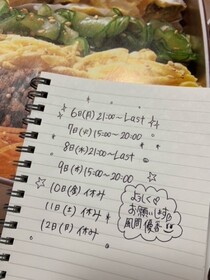 6日(月) 21:00〜Last
7日(火) 15:00〜20:00
8日(水) 21:00〜Last
9日(木) 15:00〜20:00
10日(金) 休み
11日(土) 休み
12日(日) 休み
よろしく
お願いします!!
風間 優香